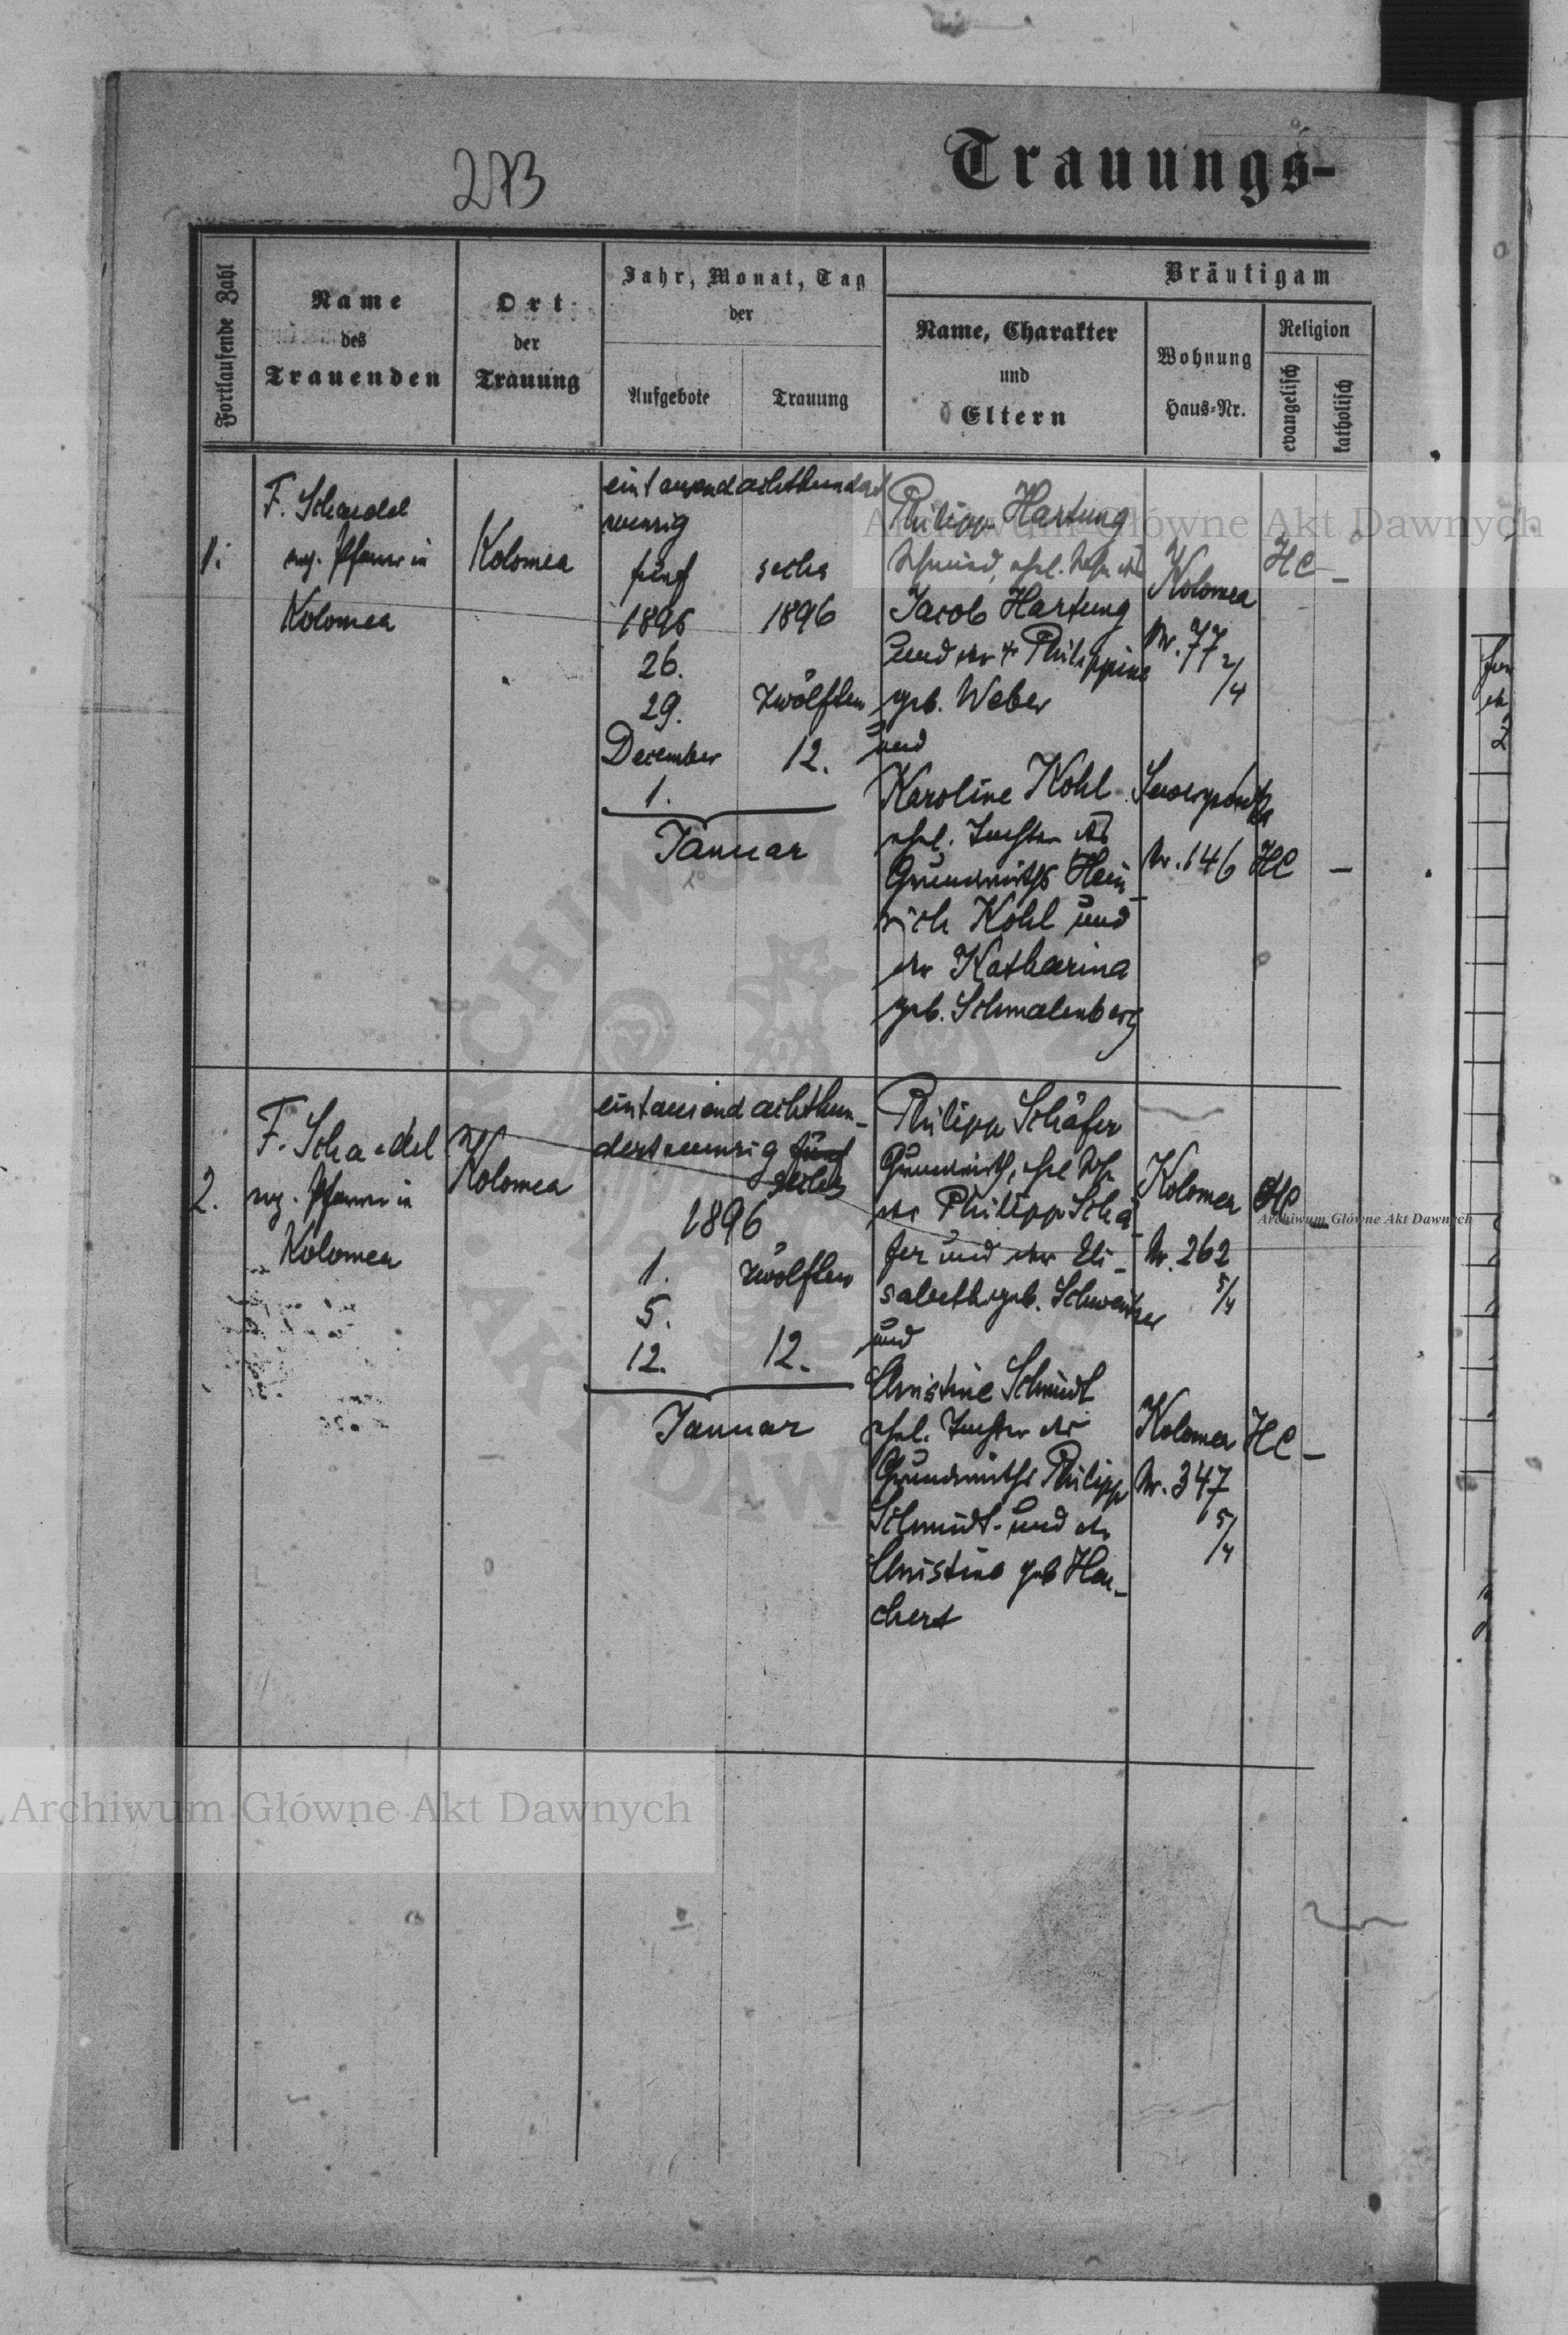 273
Trauungs-
Fortlaufende Zahl
Name
des
Trauenden
Ort
der
Trauung
Jahr, Monat, Tag
der
Aufgebote
Trauung
Bräutigam
Name, Charakter
und
Eltern
Wohnung
Haus-Nr.
Religion
evangelisch
katholisch
1.
F. Schaedel
evg. Pfarrer in
Kolomea
Kolomea
eintausendachthundert
neunzig
fünf
1895
26.
29.
December
1.
sechs
1896
zwölften
12.
Januar
Philipp Hartung
Schmied, ehel. Sohn des
Jacob Hartung
und der + Philippine
geb. Weber
und
Karoline Kohl
ehel. Tochter des
Grundwirths Hein-
rich Kohl und
der Katharina
geb. Schmalenberg
Kolomea
Nr. 77
2/4
HC
-
Nr. 146
HC
-
2.
F. Schaedel
evg. Pfarrer in
Kolomea
Kolomea
eintausendachthun-
dertneunzig fünf
sechs
1896
1.
5.
12.
zwölften
12.
Januar
Philipp Schäfer
Grundwirth, ehel. Sohn
des Philipp Schä-
fer und der Eli-
sabeth geb. Schweitzer
und
Christine Schmidt
ehel. Tochter des
Grundwirths Philipp
Schmidt und der
Christine geb.
Kolomea
Nr. 262
5/4
HC
-
Kolomea
Nr. 347
5/4
HC
-
Archiwum Główne Akt Dawnych
Archiwum Główne Akt Dawnych
Archiwum Główne Akt Dawnych
ARCHIWUM
AKT DAW